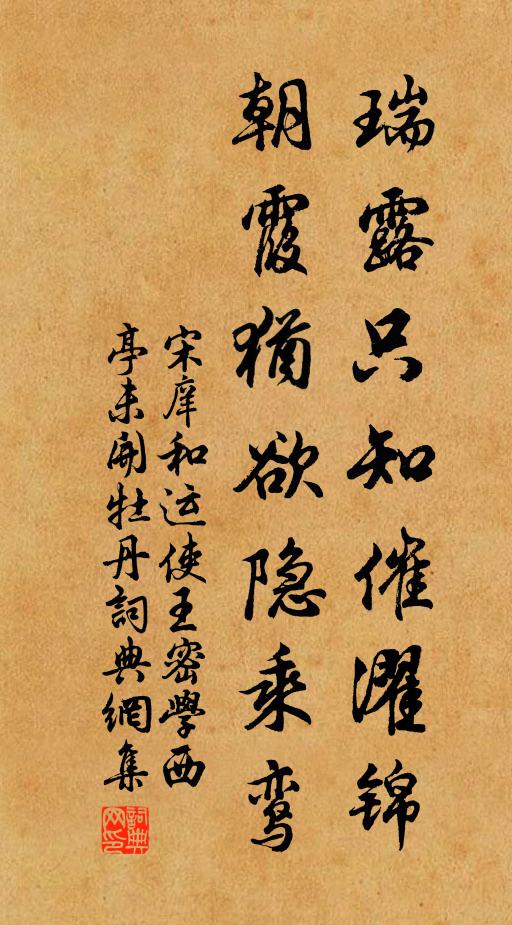 瑞露只知催濯锦
朝霞犹欲隐乘鸾
宋庠和运使王密學西
亭未開牡丹詞典網集
詞典网印